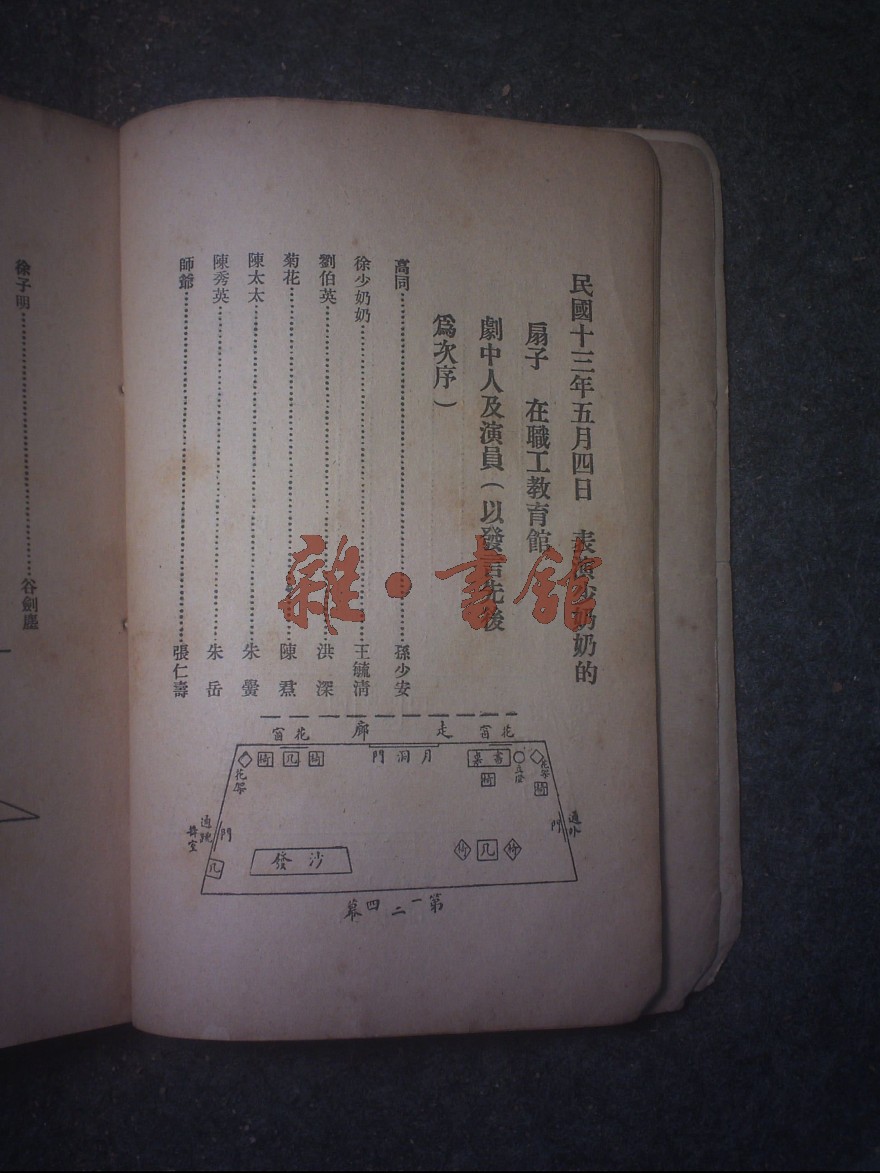 民國十三年五月四日　表演少奶奶的
扇子　在職工教育館
劇中人及演員（以發言先後
爲次序）
高同……孫少安
徐少奶奶……王毓清
劉伯英……洪　深
菊花……陳　熹
陳太太……朱
陳秀英……朱　岳
師爺……張仁壽
徐子明……谷劍塵
走廊
花窗
花窗
月洞門
椅
几
椅
書桌
椅
立燈
花架
椅
花架
門
通外
門
通跳舞室
几
沙發
椅
几
椅
第一二四幕
雜·書館